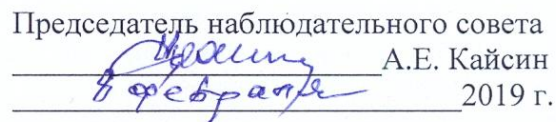 Председатель наблюдательного совета
А.Е. Кайсин
8 февраля 2019 г.